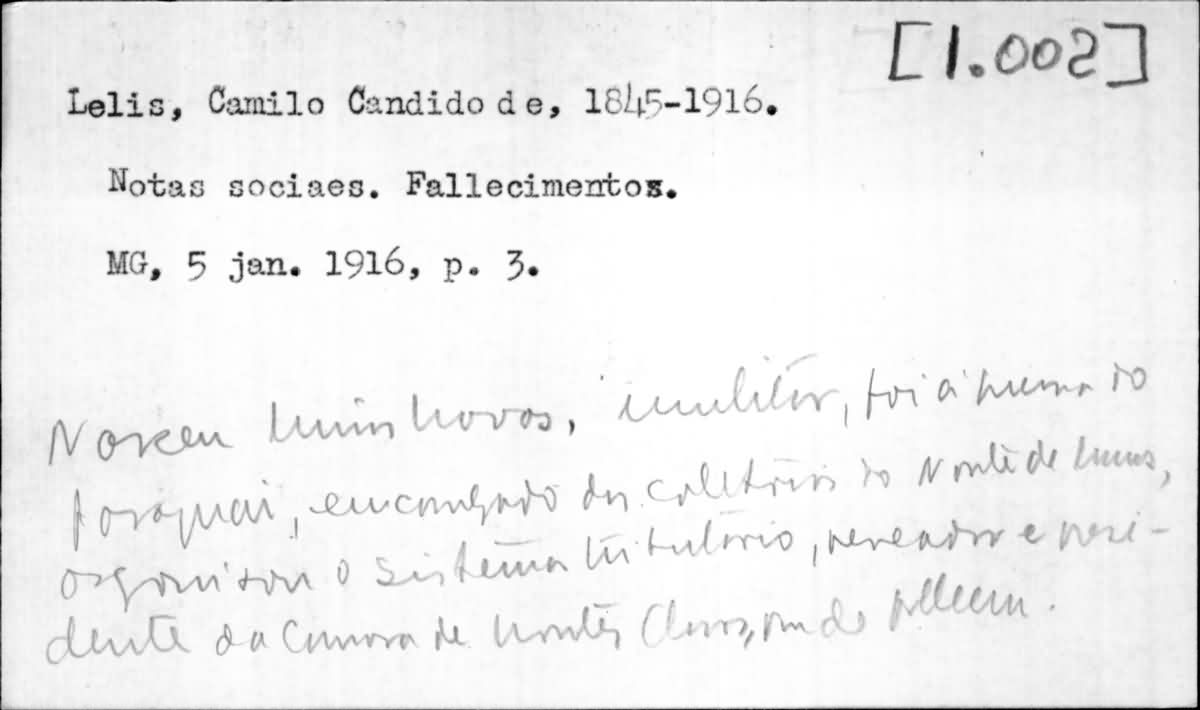 [1.002]
Lelis, Camilo Candido de, 1845-1916.
Notas sociaes. Fallecimentos.
MG, 5 jan. 1916, p. 3.
Nasceu Minas Novas, militar, foi à guerra do
Paraguai, encarregado das coletorias do Norte de Minas,
organisou o sistema tributário, vereador e presi-
dente da Camara de Montes Claros, onde faleceu.